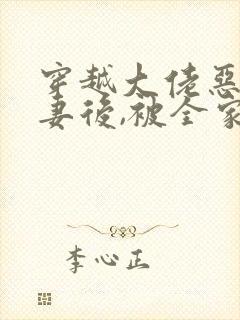 穿越大佬惡
妻後,被全家
李心正